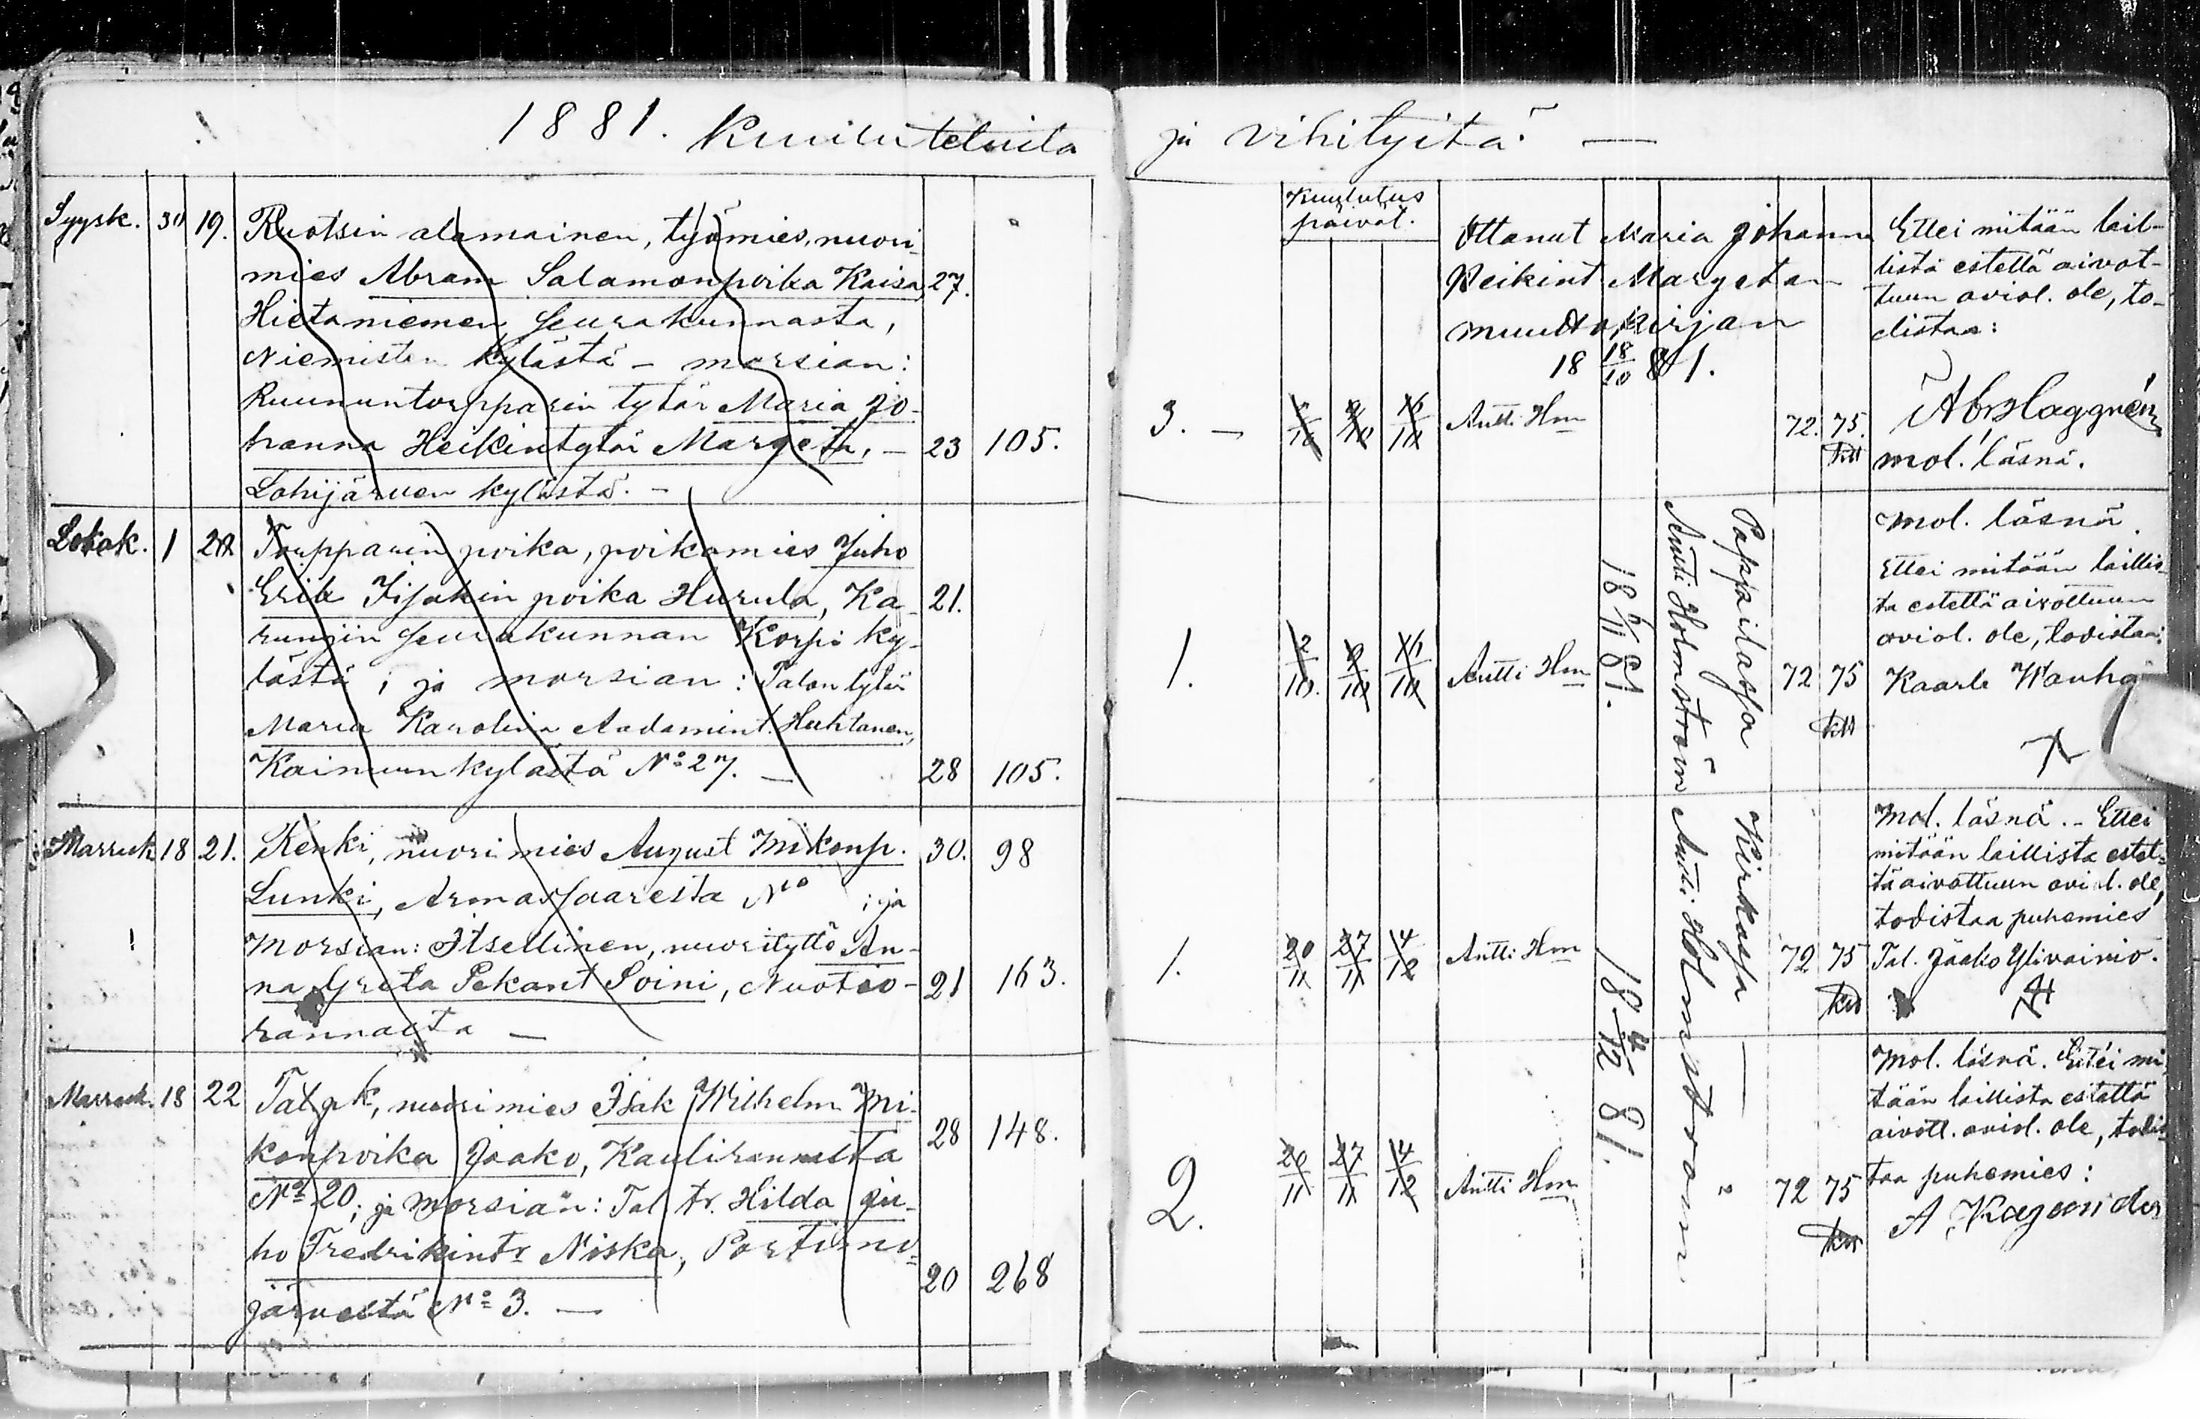 1881. Kuulutetuita
Syysk. 30 19. Ruotsin alamainen, työmies, nuori-
mies Abram Salamonpoika Kaisa, 27.
Hietaniemen seurakunnasta,
Niemisten kylästä - morsian:
Ruununtorpparin tytär Maria Jo-
hanna Heikintytär Margeta, - 23 105.
Lohijärven kylästä. -
Lokak. 1 20 Torpparin poika, poikamies Juho
Erik Iisakin poika Hurula, Ka- 21.
rungin seurakunnan Korpi ky-
lästä; ja morsian: Talon tytär
Maria Karolina Aadamint. Huhtanen,
Kainuunkylästä No 27. - 28 105.
Marrask. 18 21. Renki, nuorimies August Mikonp. 30. 98
Lunki, Armassaaresta No ; ja
Morsian: Itsellinen, nuorityttö An-
na Greta Pekant Soini, Nuotio- 21 163.
rannasta -
Marrask. 18 22 Tal. nuorimies Isak Wilhelm Mi-
konpoika Jaako, Kaulirannalta 28 148.
No 20; ja morsian: Tal. tr. Hilda Ju-
ho Fredrikintr Niska, Portimo-
järvestä No 3. - 20 268
ja vihityitä. -
Kuulutus
päivät.
Ottanut Maria Johanna
Heikint Margetan
muuttokirjan
18 18/10 81.
3. - 2/10 9/10 16/10 Antti Hm 72. 75.
Ettei mitään lail-
lista estettä aivot-
tuun aviol. ole, to-
distaa:
Abr Haggrén
mol. läsnä.
1. 2/10. 9/10 16/10 Antti Hm 72 75
18 11 81.
Pappilassa
Antti Holmström
mol. läsnä.
Ettei mitään laillis-
ta estettä aivottuun
aviol. ole, todistaa:
Kaarle Wanha
1. 20/11 27/11 4/12 Antti Hm 72 75
18 4/12 81.
Kirkossa
Antti Holmström
Mol. läsnä. - Ettei
mitään laillista estet-
tä aivottuun aviol. ole,
todistaa puhemies
Tal. Jaako Ylivainio.
2. 20/11 27/11 4/12 Antti Hm " 72 75
Mol. läsnä. Ettei mi-
tään laillista estettä
aivott. aviol. ole, todis-
taa puhemies: